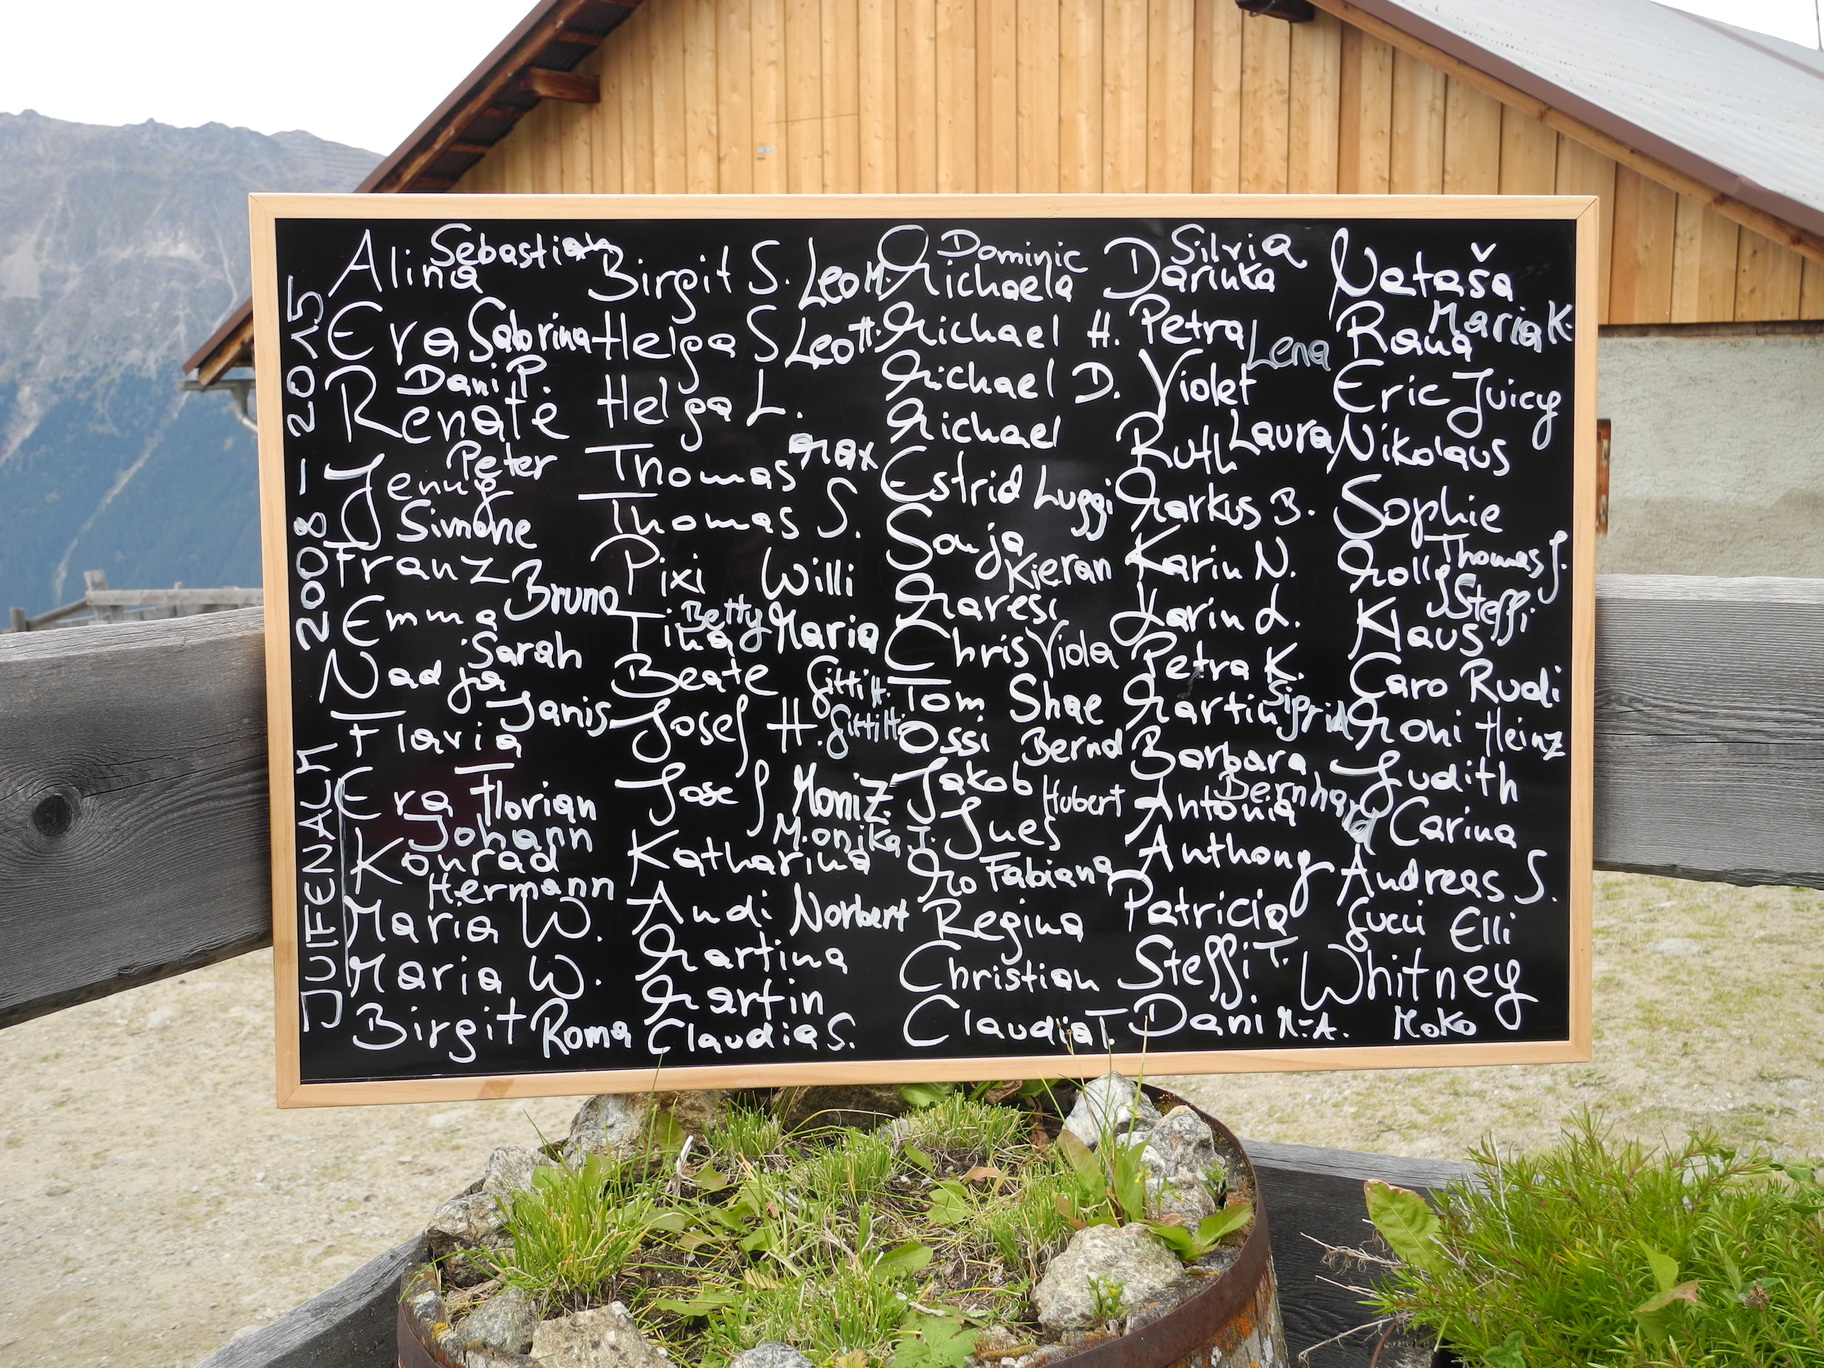 JUIFENALM 2008 - 2015
Sebastian Dominic Silvia
Alina Birgit S. Leo M. Michaela Darinka Nataša
Eva Sabrina Helga S. Leo H. Michael H. Petra Lena Rana Maria K.
Dani P. Michael D. Violet Eric Juicy
Renate Helga L. Michael Ruth Laura Nikolaus
Peter Thomas Max Estrid Luggi Markus B. Sophie
Jenny
Simone Thomas S. Sonja Thomas J.
Franz Pixi Willi Kieran Karin N. Molly
Emma Bruno Tina Betty Maria Maresi Karin L. Klaus Steffi
Sarah Chris Viola Petra K.
Nadja Beate Gitti H. Tom Shae Martin Sigrid Caro Rudi
Janis Josef H. Gitti H. Ossi Bernd Barbara Moni Heinz
Flavia
Eva Florian Josef Moni Z. Jakob Hubert Antonia Bernhard Judith
Johann Monika J. Ines Carina
Konrad Katharina Mo Fabiana Anthony Andreas S.
Hermann
Maria W. Andi Norbert Regina Patricia Gucci Elli
Maria W. Martina Christian Steffi T. Whitney
Martin
Birgit Roma Claudia S. Claudia T. Dani M.-A. Moko